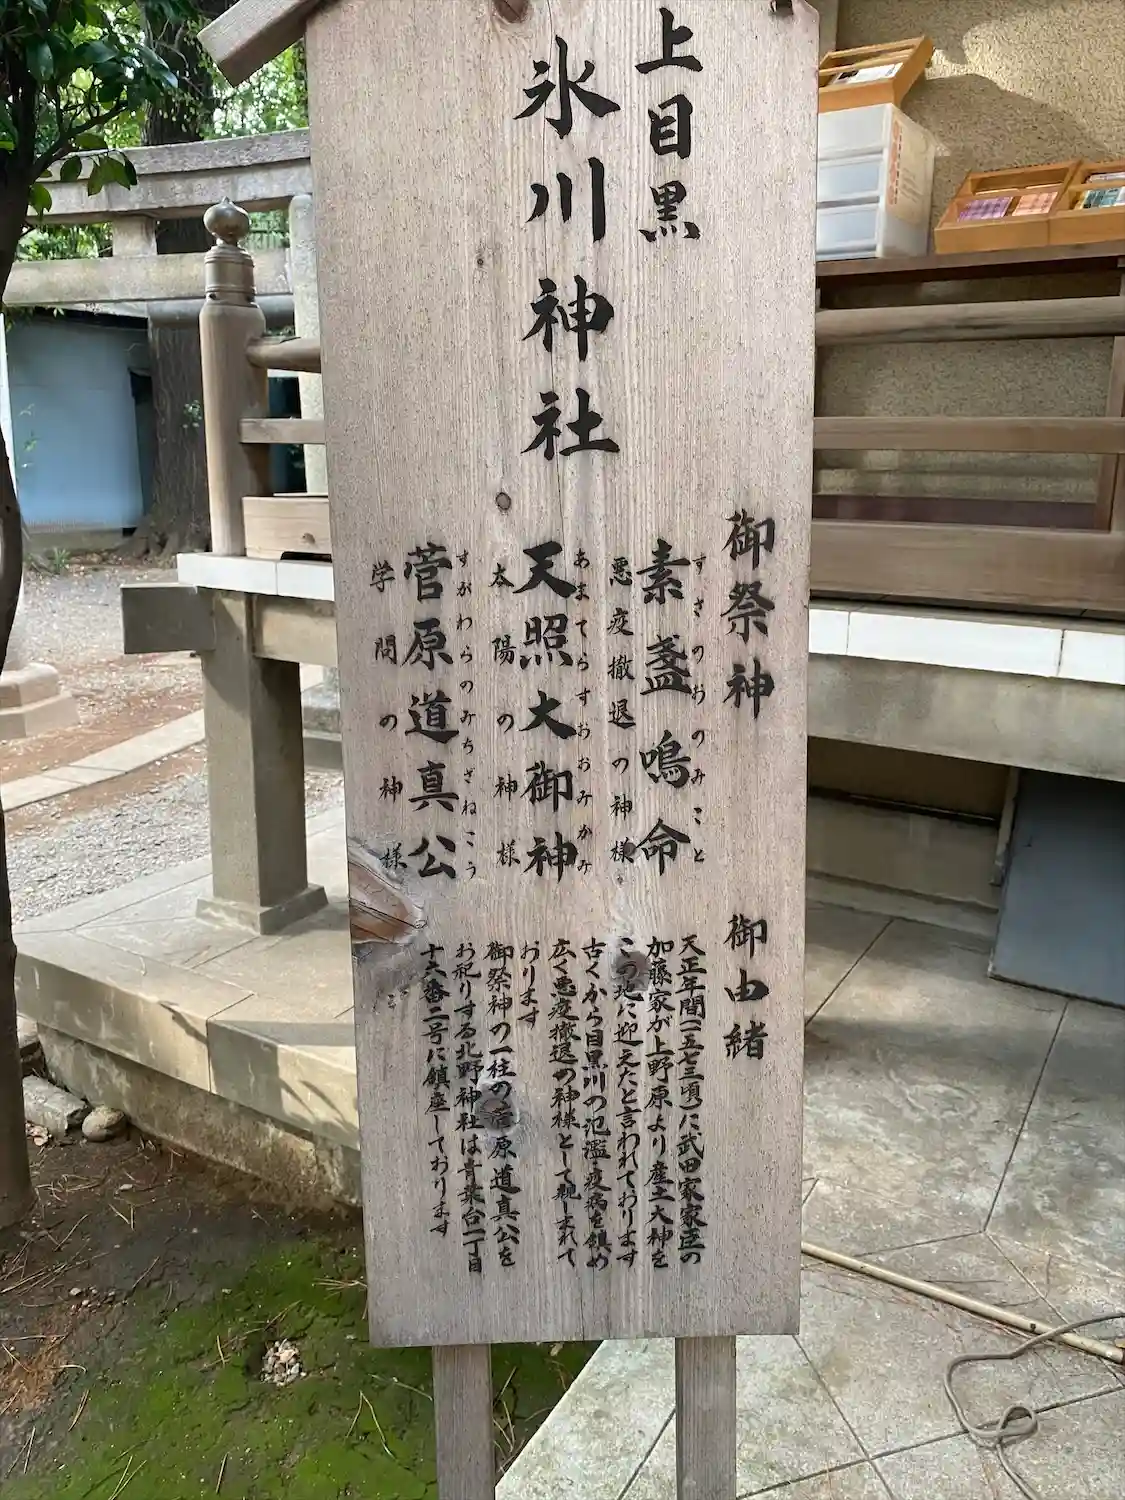 上目黒
氷川神社
御祭神
すさのおのみこと
素盞鳴命
悪疫撤退の神様
あまてらすおおみかみ
天照大御神
太陽の神様
すがわらのみちざねこう
菅原道真公
学問の神様
御由緒
天正年間(一五七三頃)に武田家家臣の
加藤家が上野原より産土大神を
この地に迎えたと言われております
古くから目黒川の氾濫・疫病を鎮め
広く悪疫撤退の神様として親しまれて
おります
御祭神の一柱の菅原道真公を
お祀りする北野神社は青葉台一丁目
十六番二号に鎮座しております